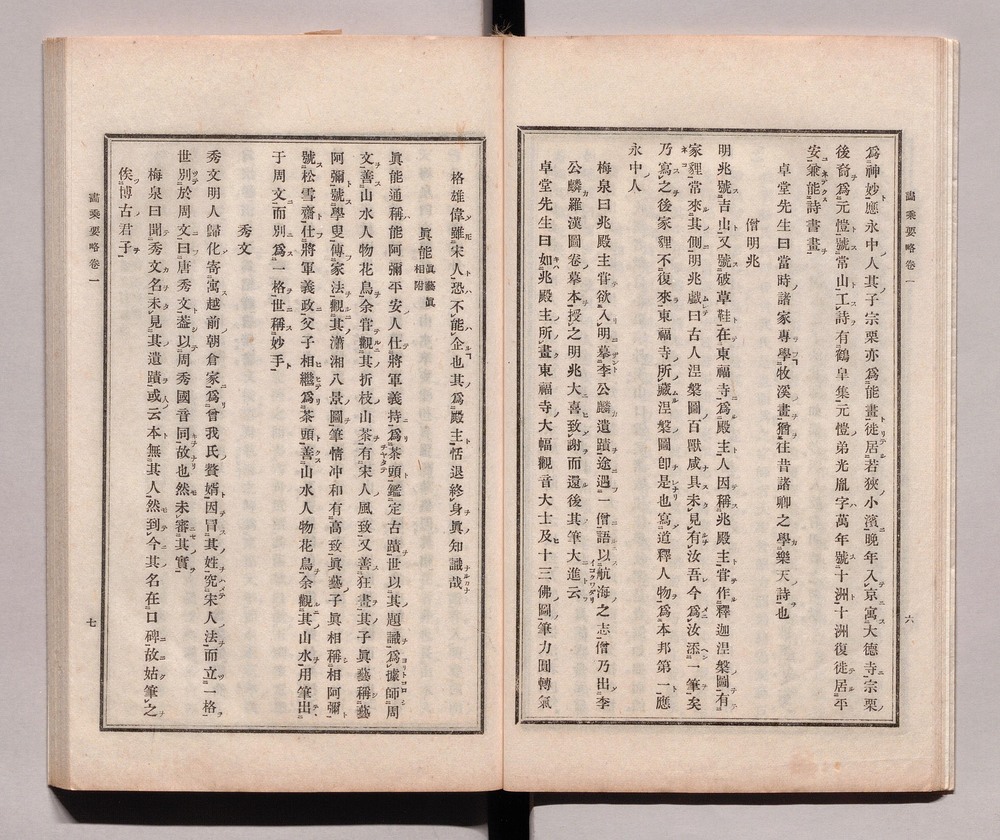 畫乘要略卷一
爲神妙應永中人其子宗栗亦爲能畫徙居若狹小濱晚年入京寓大德寺宗栗
後裔爲元愷號常山工詩有鶴皐集元愷弟光胤字萬年號十洲十洲復徙居平
安兼能詩書畫
卓堂先生曰當時諸家專學牧溪畫猶往昔諸卿之學樂天詩也
僧明兆
明兆號吉山又號破草鞋在東福寺爲殿主人因稱兆殿主甞作釋迦涅槃圖有
家貍常來其側明兆戲曰古人涅槃圖百獸咸具未見有汝吾今爲汝添一筆矣
乃寫之後家貍不復來東福寺所藏涅槃圖卽是也寫道釋人物爲本邦第一應
永中人
梅泉曰兆殿主甞欲入明摹李公麟遺蹟途遇一僧語以航海之志僧乃出李
公麟羅漢圖卷摹本授之明兆大喜致謝而還後其筆大進云
卓堂先生曰如兆殿主所畫東福寺大幅觀音大士及十三佛圖筆力圓轉氣
六
格雄偉雖宋人恐不能企也其爲殿主恬退終身眞知識哉
眞能眞藝眞相附
眞能通稱能阿彌平安人仕將軍義持爲茶頭鑑定古蹟世以其題識爲據師周
文善山水人物花鳥余甞觀其折枝山茶有宋人風致又善狂畫其子眞藝稱藝
阿彌號學叟傳家法觀其瀟湘八景圖筆情冲和有高致眞藝子眞相稱相阿彌
號松雪齋仕將軍義政父子相繼爲茶頭善山水人物花鳥余觀其山水用筆出
于周文而別爲一格世稱妙手
秀文
秀文明人歸化寄寓越前朝倉家爲曾我氏贅婿因冒其姓究宋人法而立一格
世別於周文曰唐秀文葢以周秀國音同故也然未審其實
梅泉曰聞秀文名未見其遺蹟或云本無其人然到今其名在口碑故姑筆之
俟博古君子
畫乘要略卷一
七